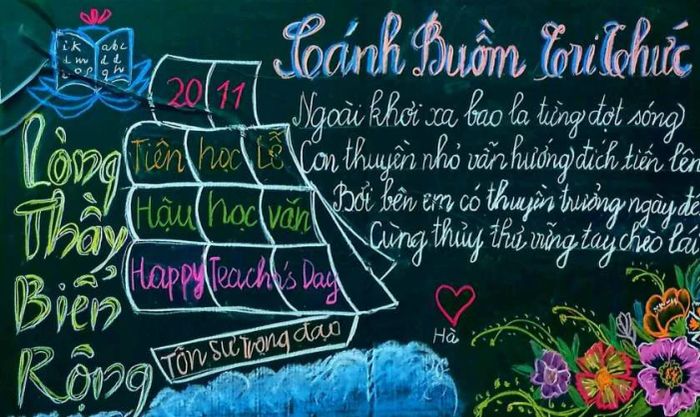 Cánh Buồm Tri Thức
20 11
Tiên học Lễ
Hậu học văn
Happy Teacher's Day
Tôn sư trọng đạo
Lòng
Thầy
Biển
Rộng
Ngoài khơi xa bao la từng đợt sóng
Con thuyền nhỏ vẫn hướng đích tiến lên
Bởi bên em có thuyền trưởng ngày đê
Cùng thủy thủ vững tay chèo lái
Hà